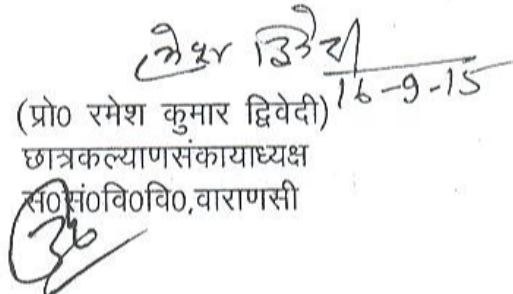 रमेश द्विवेदी
16-9-15
(प्रो0 रमेश कुमार द्विवेदी)
छात्रकल्याणसंकायाध्यक्ष
स0सं0वि0वि0,वाराणसी